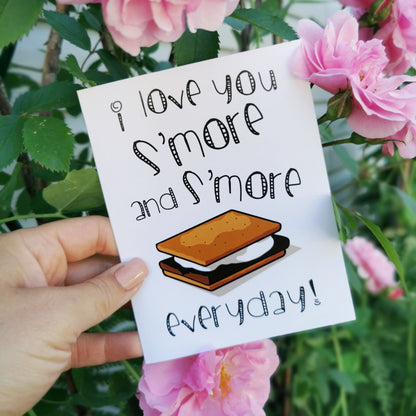 i love you
S'more
and S'more
everyday!